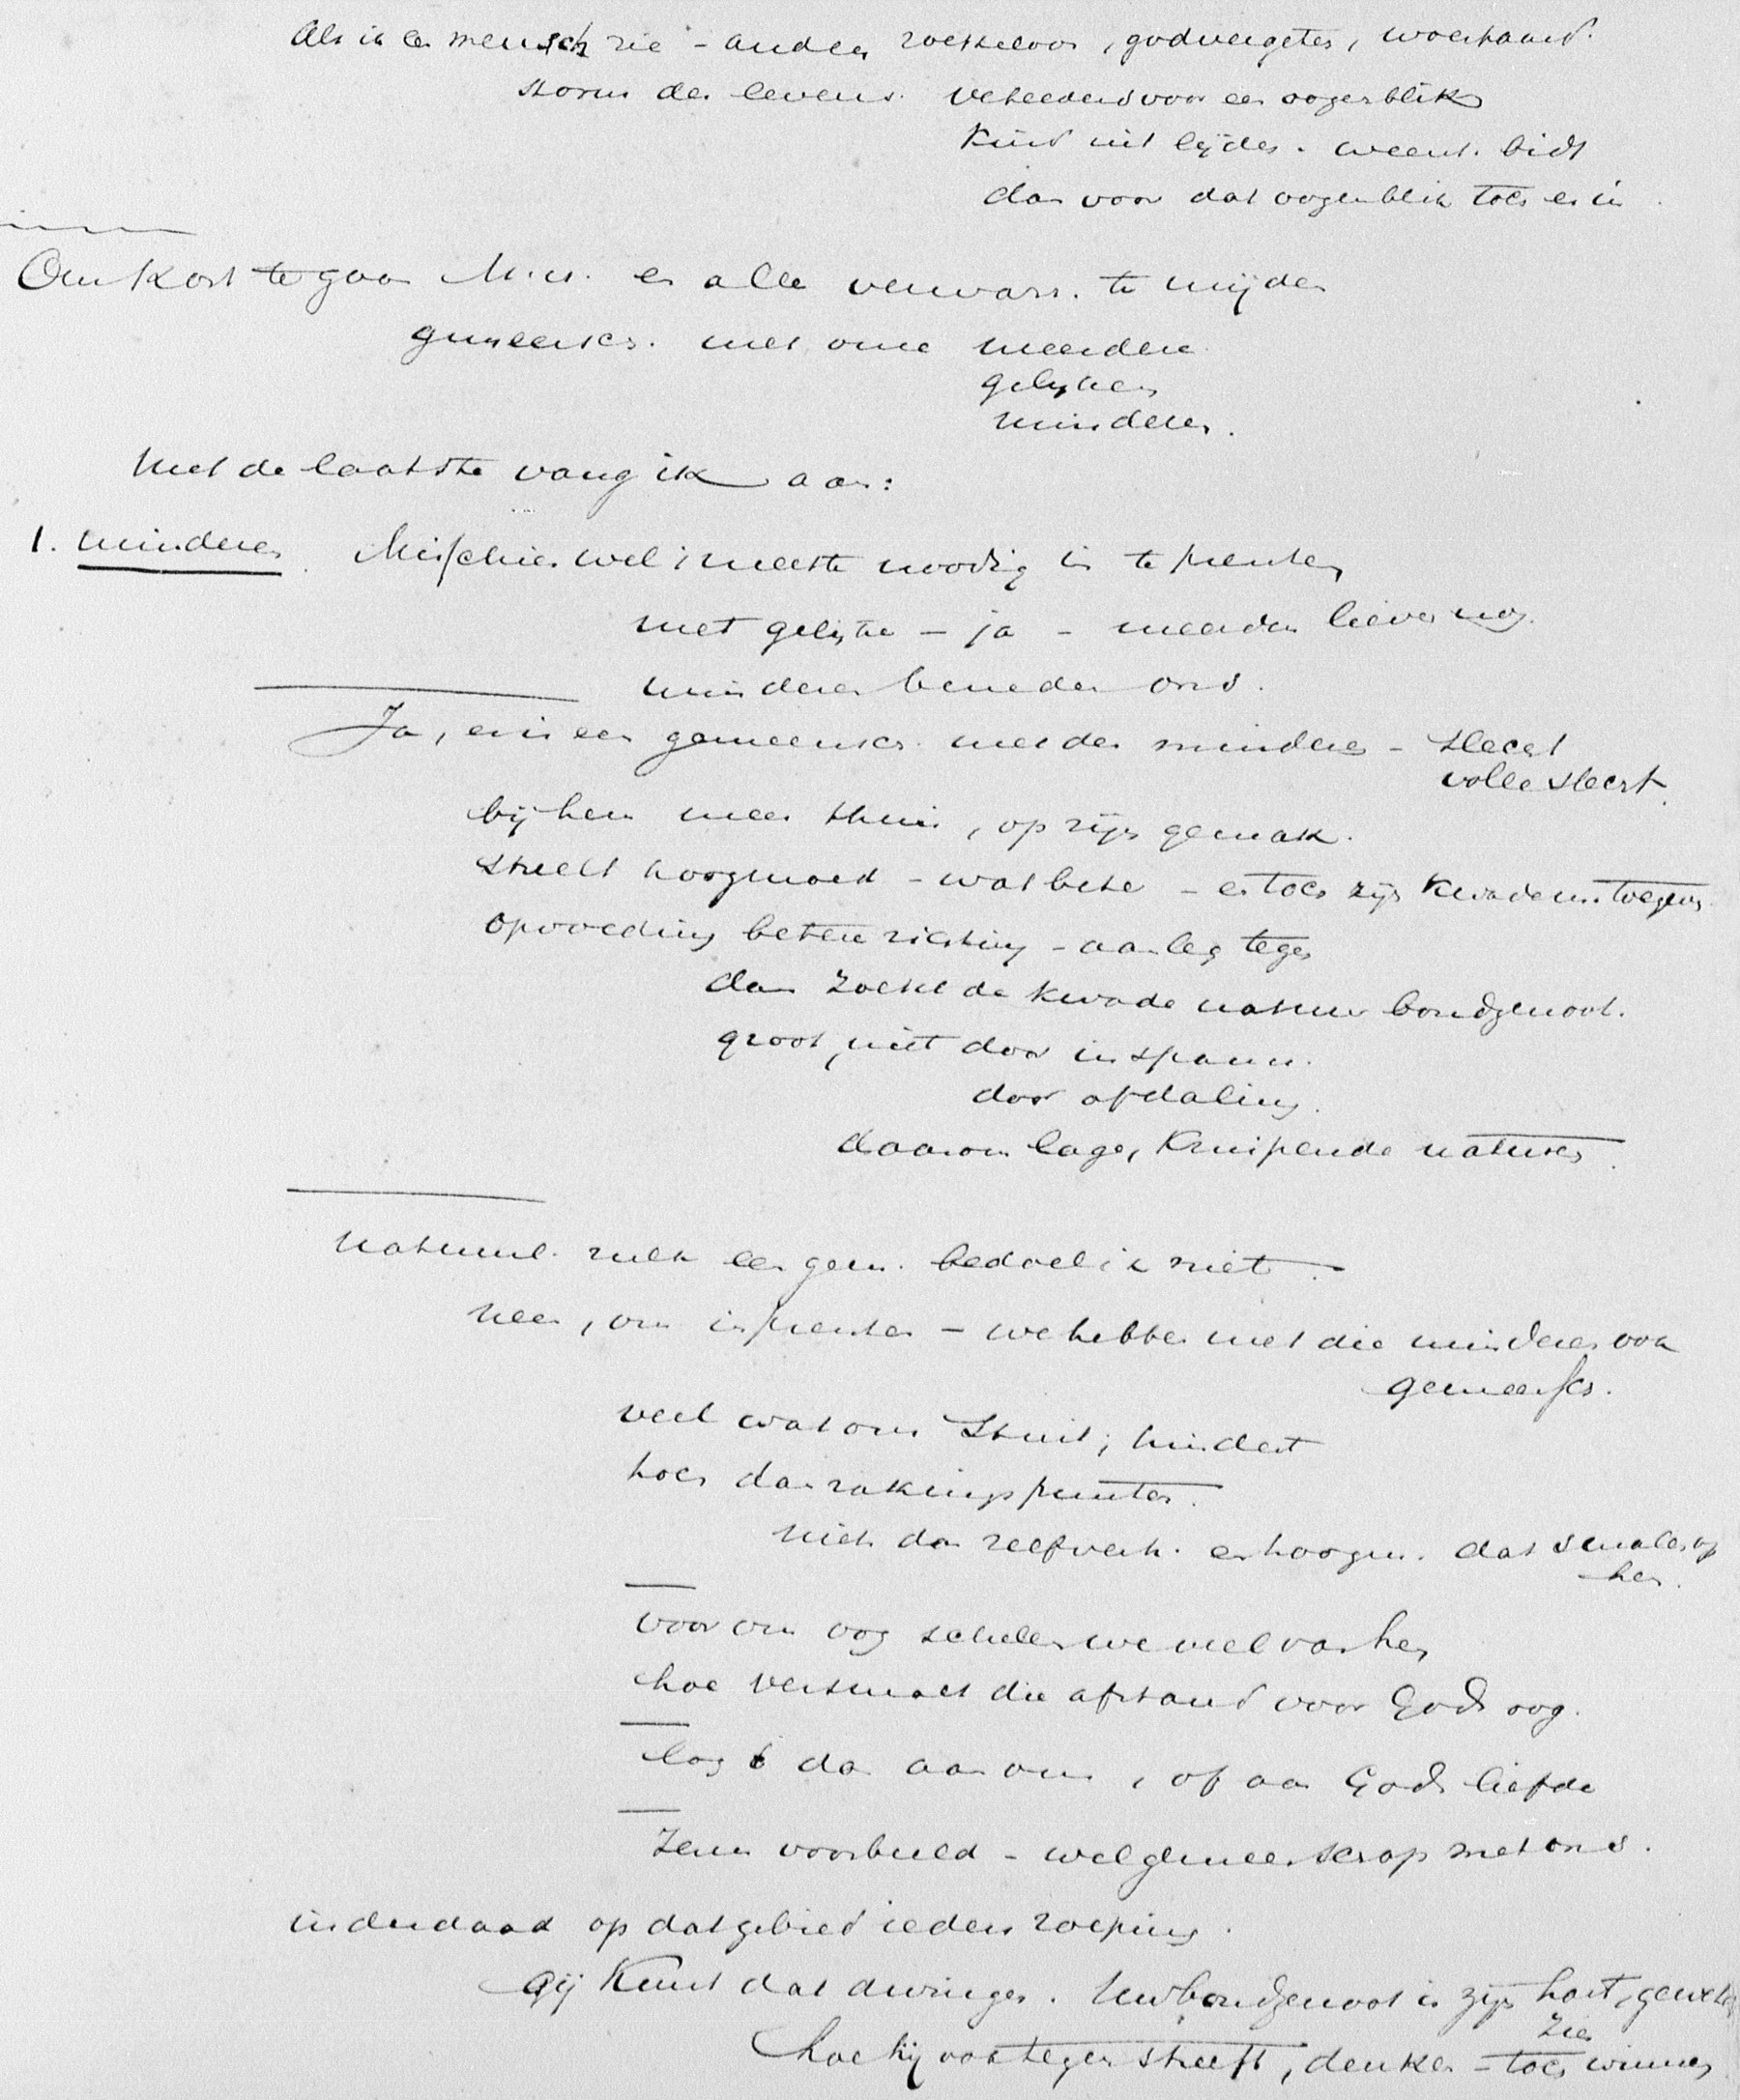 Als ik een mensch zie - anders roekeloos, godvergeten, woestaard.
storm des levens. veteederd voor een oogenblik
kind uit lijden. weent. bidt
dan voor dat oogenblik toch er in.
Om kort te gaan M.H. en alle verwarr. te mijden
gemeensch. met onze meerdere
gelijken
minderen.
Met de laatste vang ik aan:
1. minderen. Misschien wel 't meeste noodig in te prenten
met gelijke - ja - meerder liever nog.
minderen beneden ons.
Ja, er is een gemeensch. met den minderen - slecht
volle slecht.
bij hen meer thuis, op zijn gemak.
streelt hoogmoed - wat beter - en toch zijn kwade n. toegeven.
opvoeding betere richting - aanleg tegen
dan zoekt de kwade natuur bondgenoot.
groot, niet door inspann.
door afdaling.
daarom lage, kruipende naturen.
Natuurl. zulk een gem. bedoel ik niet.
Neen, om in prenten - we hebben met die minderen ook
gemeensch.
veel wat ons stuit, hindert
toch dan rakingspunten.
niet dan zelfverh. en hoogm. dat smalen op
hen.
voor ons oog schelen we veel van hen
hoe versmalt die afstand voor Gods oog.
lag 't dan aan ons, of aan Gods liefde
Jezus voorbeeld - wel gemeenschap met ons.
inderdaad op dat gebied ieders roeping.
Gij kunt dat dwingen. Uw bondgenoot is zijn hart, geweten
zien
hoe hij ook tegen streeft, denken - toch winnen